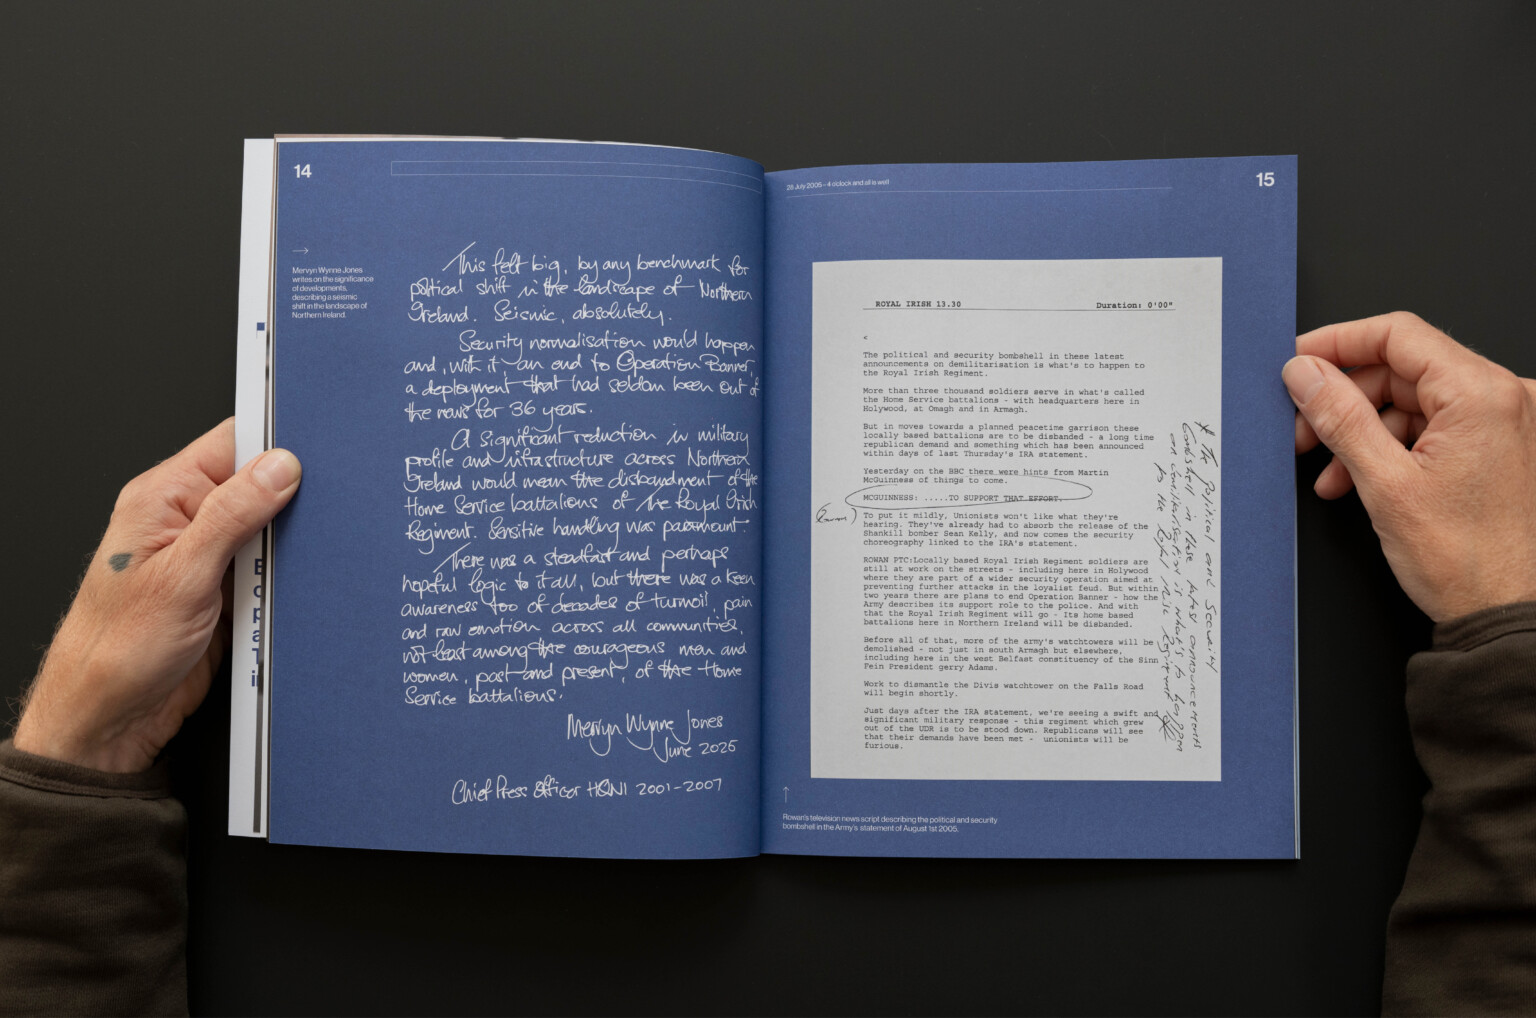 14
Mervyn Wynne Jones
writes on the significance
of developments,
describing a seismic
shift in the landscape of
Northern Ireland.
This felt big, by any benchmark for
political shift in the landscape of Northern
Ireland. Seismic, absolutely.
Security normalisation would happen
and, with it, an end to Operation Banner,
a deployment that had seldom been out of
the news for 36 years.
A significant reduction in military
profile and infrastructure across Northern
Ireland would mean the disbandment of the
Home Service battalions of the Royal Irish
Regiment. Sensitive handling was paramount.
There was a steadfast and perhaps
hopeful logic to it all, but there was a keen
awareness too of decades of turmoil, pain
and raw emotion across all communities,
not least among the courageous men and
women, past and present, of the Home
Service battalions.
Mervyn Wynne Jones
June 2025
Chief Press Officer HQNI 2001-2007
28 July 2005 – 4 o'clock and all is well
15
ROYAL IRISH 13.30 Duration: 0'00"
<
The political and security bombshell in these latest
announcements on demilitarisation is what's to happen to
the Royal Irish Regiment.
More than three thousand soldiers serve in what's called
the Home Service battalions - with headquarters here in
Holywood, at Omagh and in Armagh.
But in moves towards a planned peacetime garrison these
locally based battalions are to be disbanded - a long time
republican demand and something which has been announced
within days of last Thursday's IRA statement.
Yesterday on the BBC there were hints from Martin
McGuinness of things to come.
MCGUINNESS: .....TO SUPPORT THAT EFFORT.
To put it mildly, Unionists won't like what they're
hearing. They've already had to absorb the release of the
Shankill bomber Sean Kelly, and now comes the security
choreography linked to the IRA's statement.
ROWAN PTC:Locally based Royal Irish Regiment soldiers are
still at work on the streets - including here in Holywood
where they are part of a wider security operation aimed at
preventing further attacks in the loyalist feud. But within
two years there are plans to end Operation Banner - how the
Army describes its support role to the police. And with
that the Royal Irish Regiment will go - Its home based
battalions here in Northern Ireland will be disbanded.
Before all of that, more of the army's watchtowers will be
demolished - not just in south Armagh but elsewhere,
including here in the west Belfast constituency of the Sinn
Fein President gerry Adams.
Work to dismantle the Divis watchtower on the Falls Road
will begin shortly.
Just days after the IRA statement, we're seeing a swift and
significant military response - this regiment which grew
out of the UDR is to be stood down. Republicans will see
that their demands have been met - unionists will be
furious.
* The political and security
bombshell in these latest announcements
on demilitarisation is what's to happen
to the Royal Irish Regiment
Rowan's television news script describing the political and security
bombshell in the Army's statement of August 1st 2005.